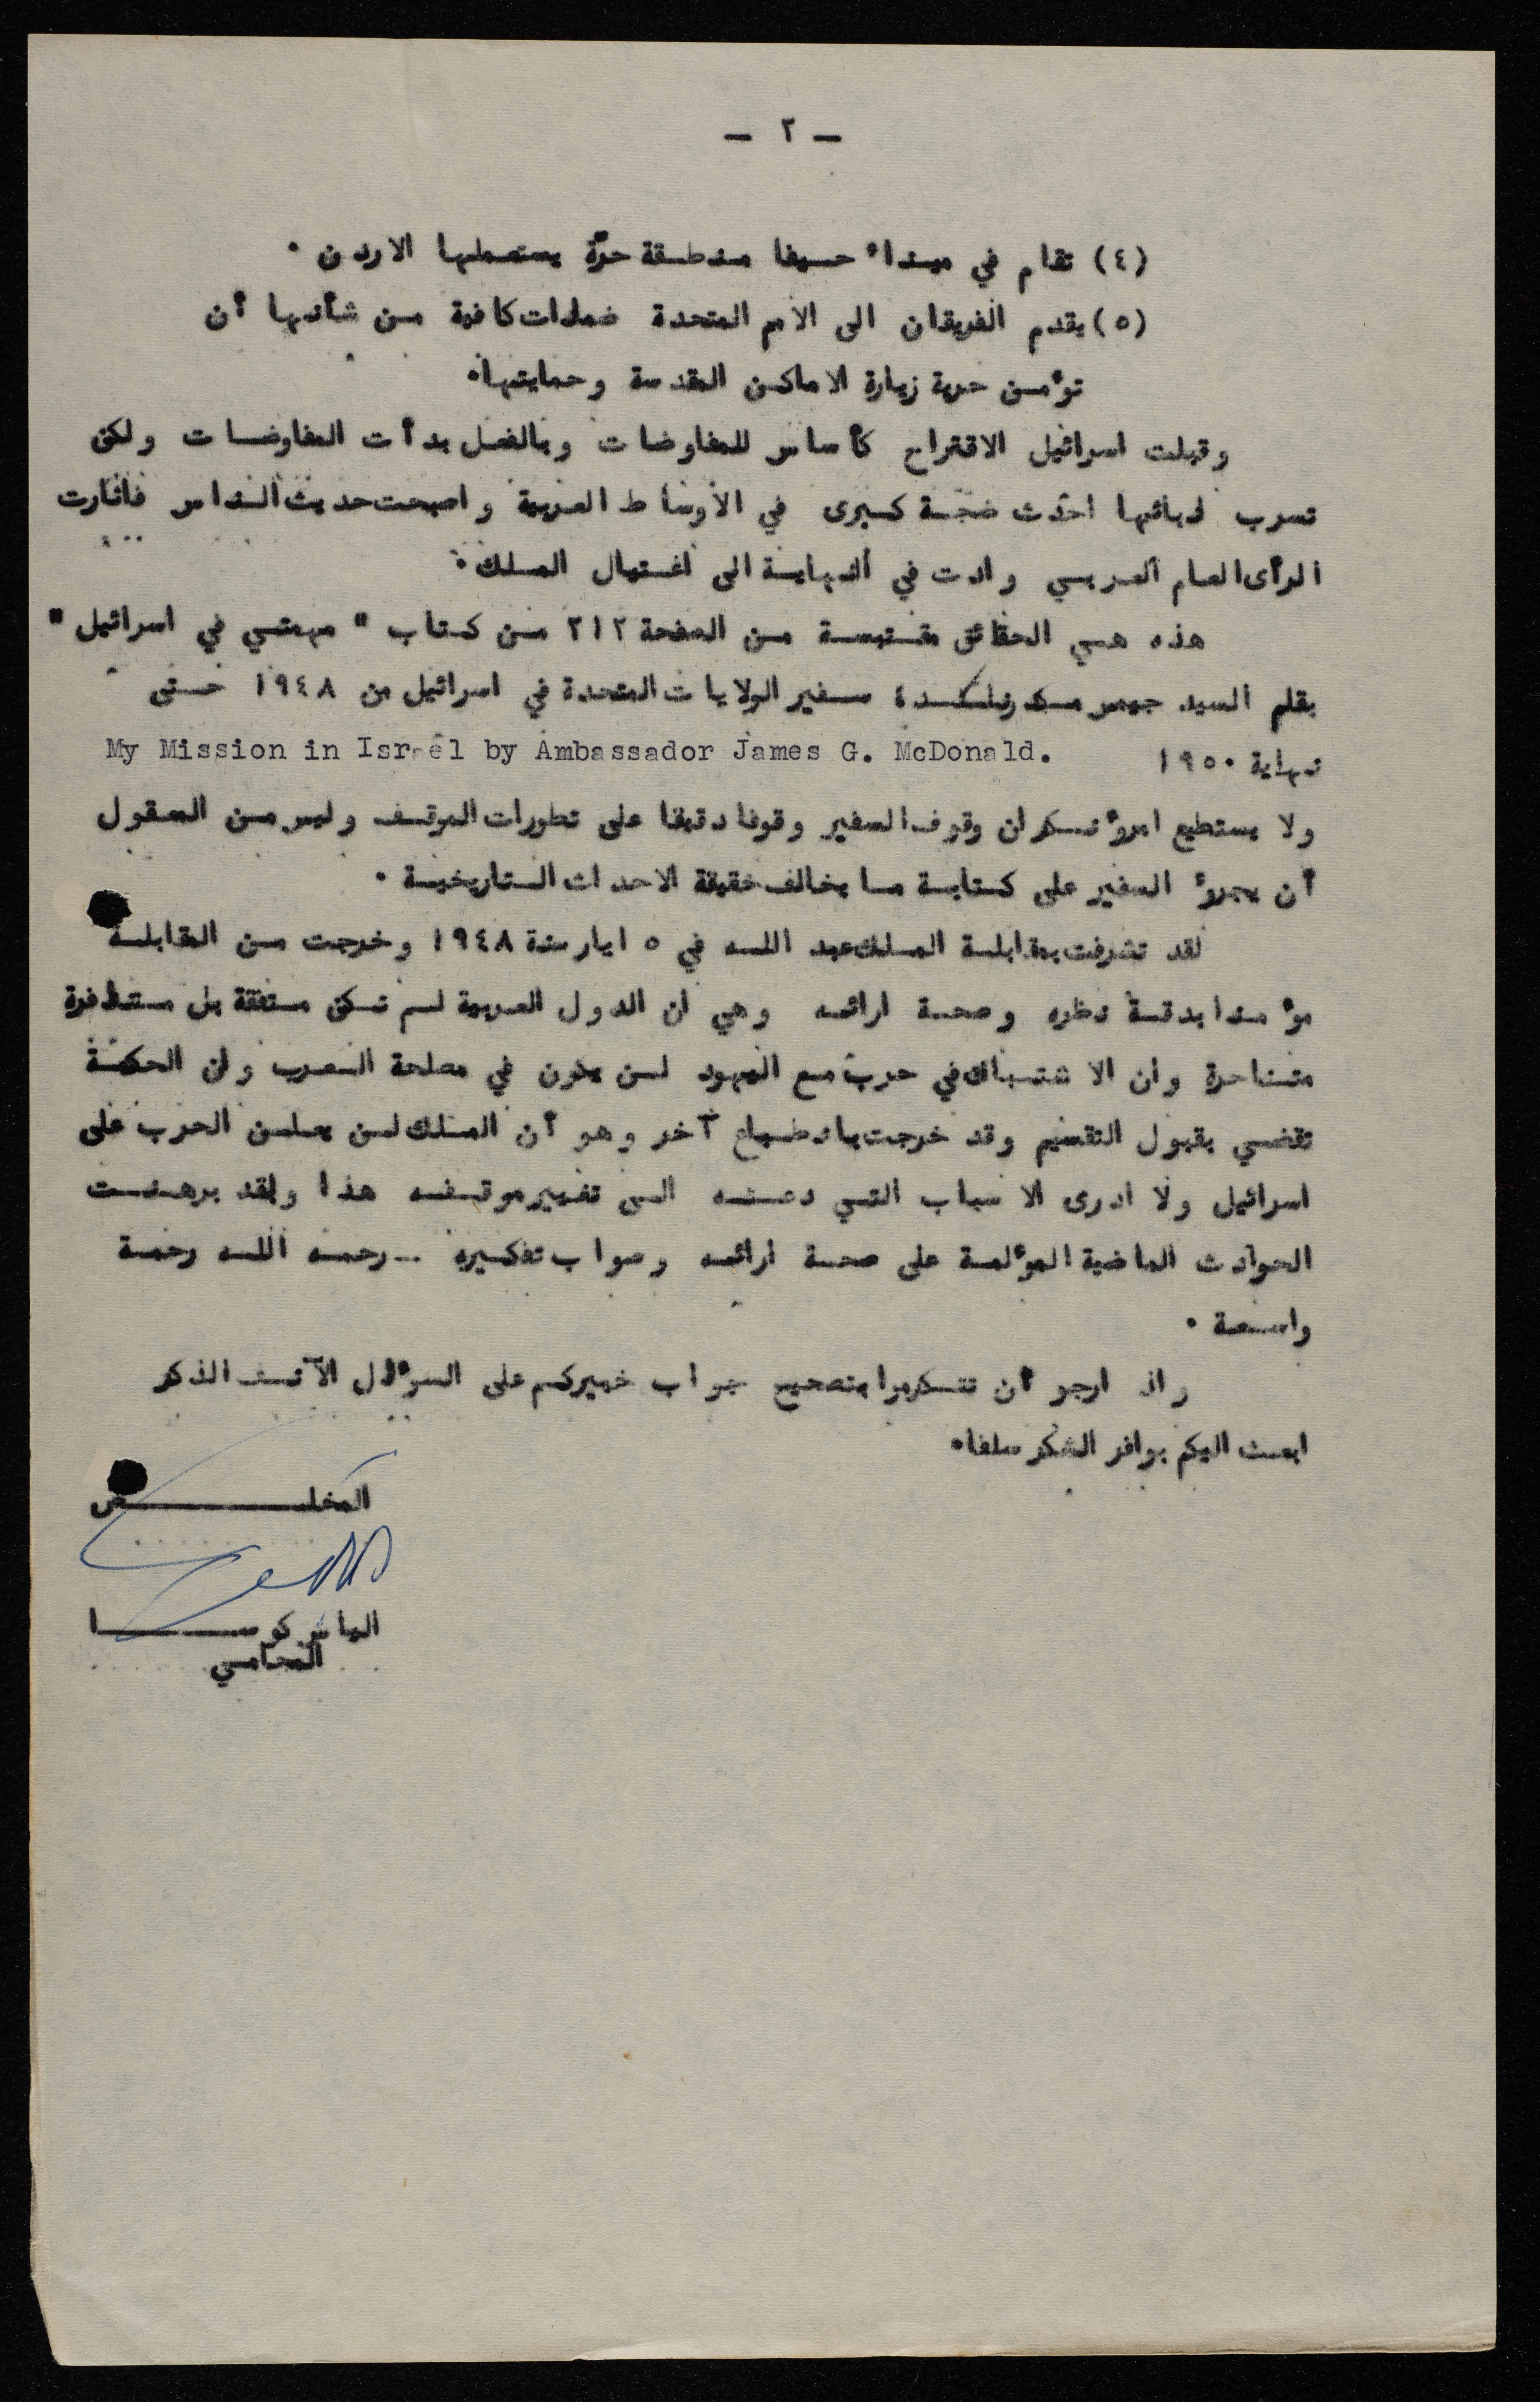 — ٢ —
(٤) تقام في ميناء حيفا منطقة حرّة يستعملها الاردن .
(٥) يقدم الفريقان الى الامم المتحدة ضمانات كافية من شأنها أن
تؤمن حرية زيارة الاماكن المقدسة وحمايتها.
وقبلت اسرائيل الاقتراح كأساس للمفاوضات وبالفعل بدأت المفاوضات ولكن
تسرب انبائها احدث ضجة كبرى في الأوساط العربية واصبحت حديث الناس فأثارت
الرأى العام العربي وادت في النهاية الى اغتيال الملك .
هذه هي الحقائق مقتبسة من الصفحة ٢١٢ من كتاب " مهمتي في اسرائيل "
بقلم السيد جيمس سفير الولايات المتحدة في اسرائيل من ١٩٤٨ حتى
نهاية ١٩٥٠ My Mission in Israel by Ambassador James G. McDonald.
ولا يستطيع امرؤ نكران وقوف السفير وقوفا دقيقا على تطورات الموقف وليس من المعقول
أن يجرؤ السفير على كتابة ما يخالف حقيقة الاحداث التاريخية .
لقد تشرفت بمقابلة الملك عبد الله في ٥ ايار سنة ١٩٤٨ وخرجت من المقابلة
مؤمنا بدقة نظره وصحة ارائه وهي ان الدول العربية لم تكن متفقة بل متنافرة
متناحرة وان الاشتباك في حرب مع اليهود لن يكون في مصلحة العرب وان الحكمة
تقضي بقبول التقسيم وقد خرجت بانطباع آخر وهو أن الملك لن يعلن الحرب على
اسرائيل ولا ادرى الاسباب التي دعته الى تغيير موقفه هذا ولقد برهنت
الحوادث الماضية المؤلمة على صحة ارائه وصواب تفكيره .. رحمه الله رحمة
واسعة .
واذ ارجو أن تتكرموا بتصحيح جواب خبيركم على السؤال الآنف الذكر
ابعث اليكم بوافر الشكر سلفا.
المخلص
الياس كوسا
المحامي